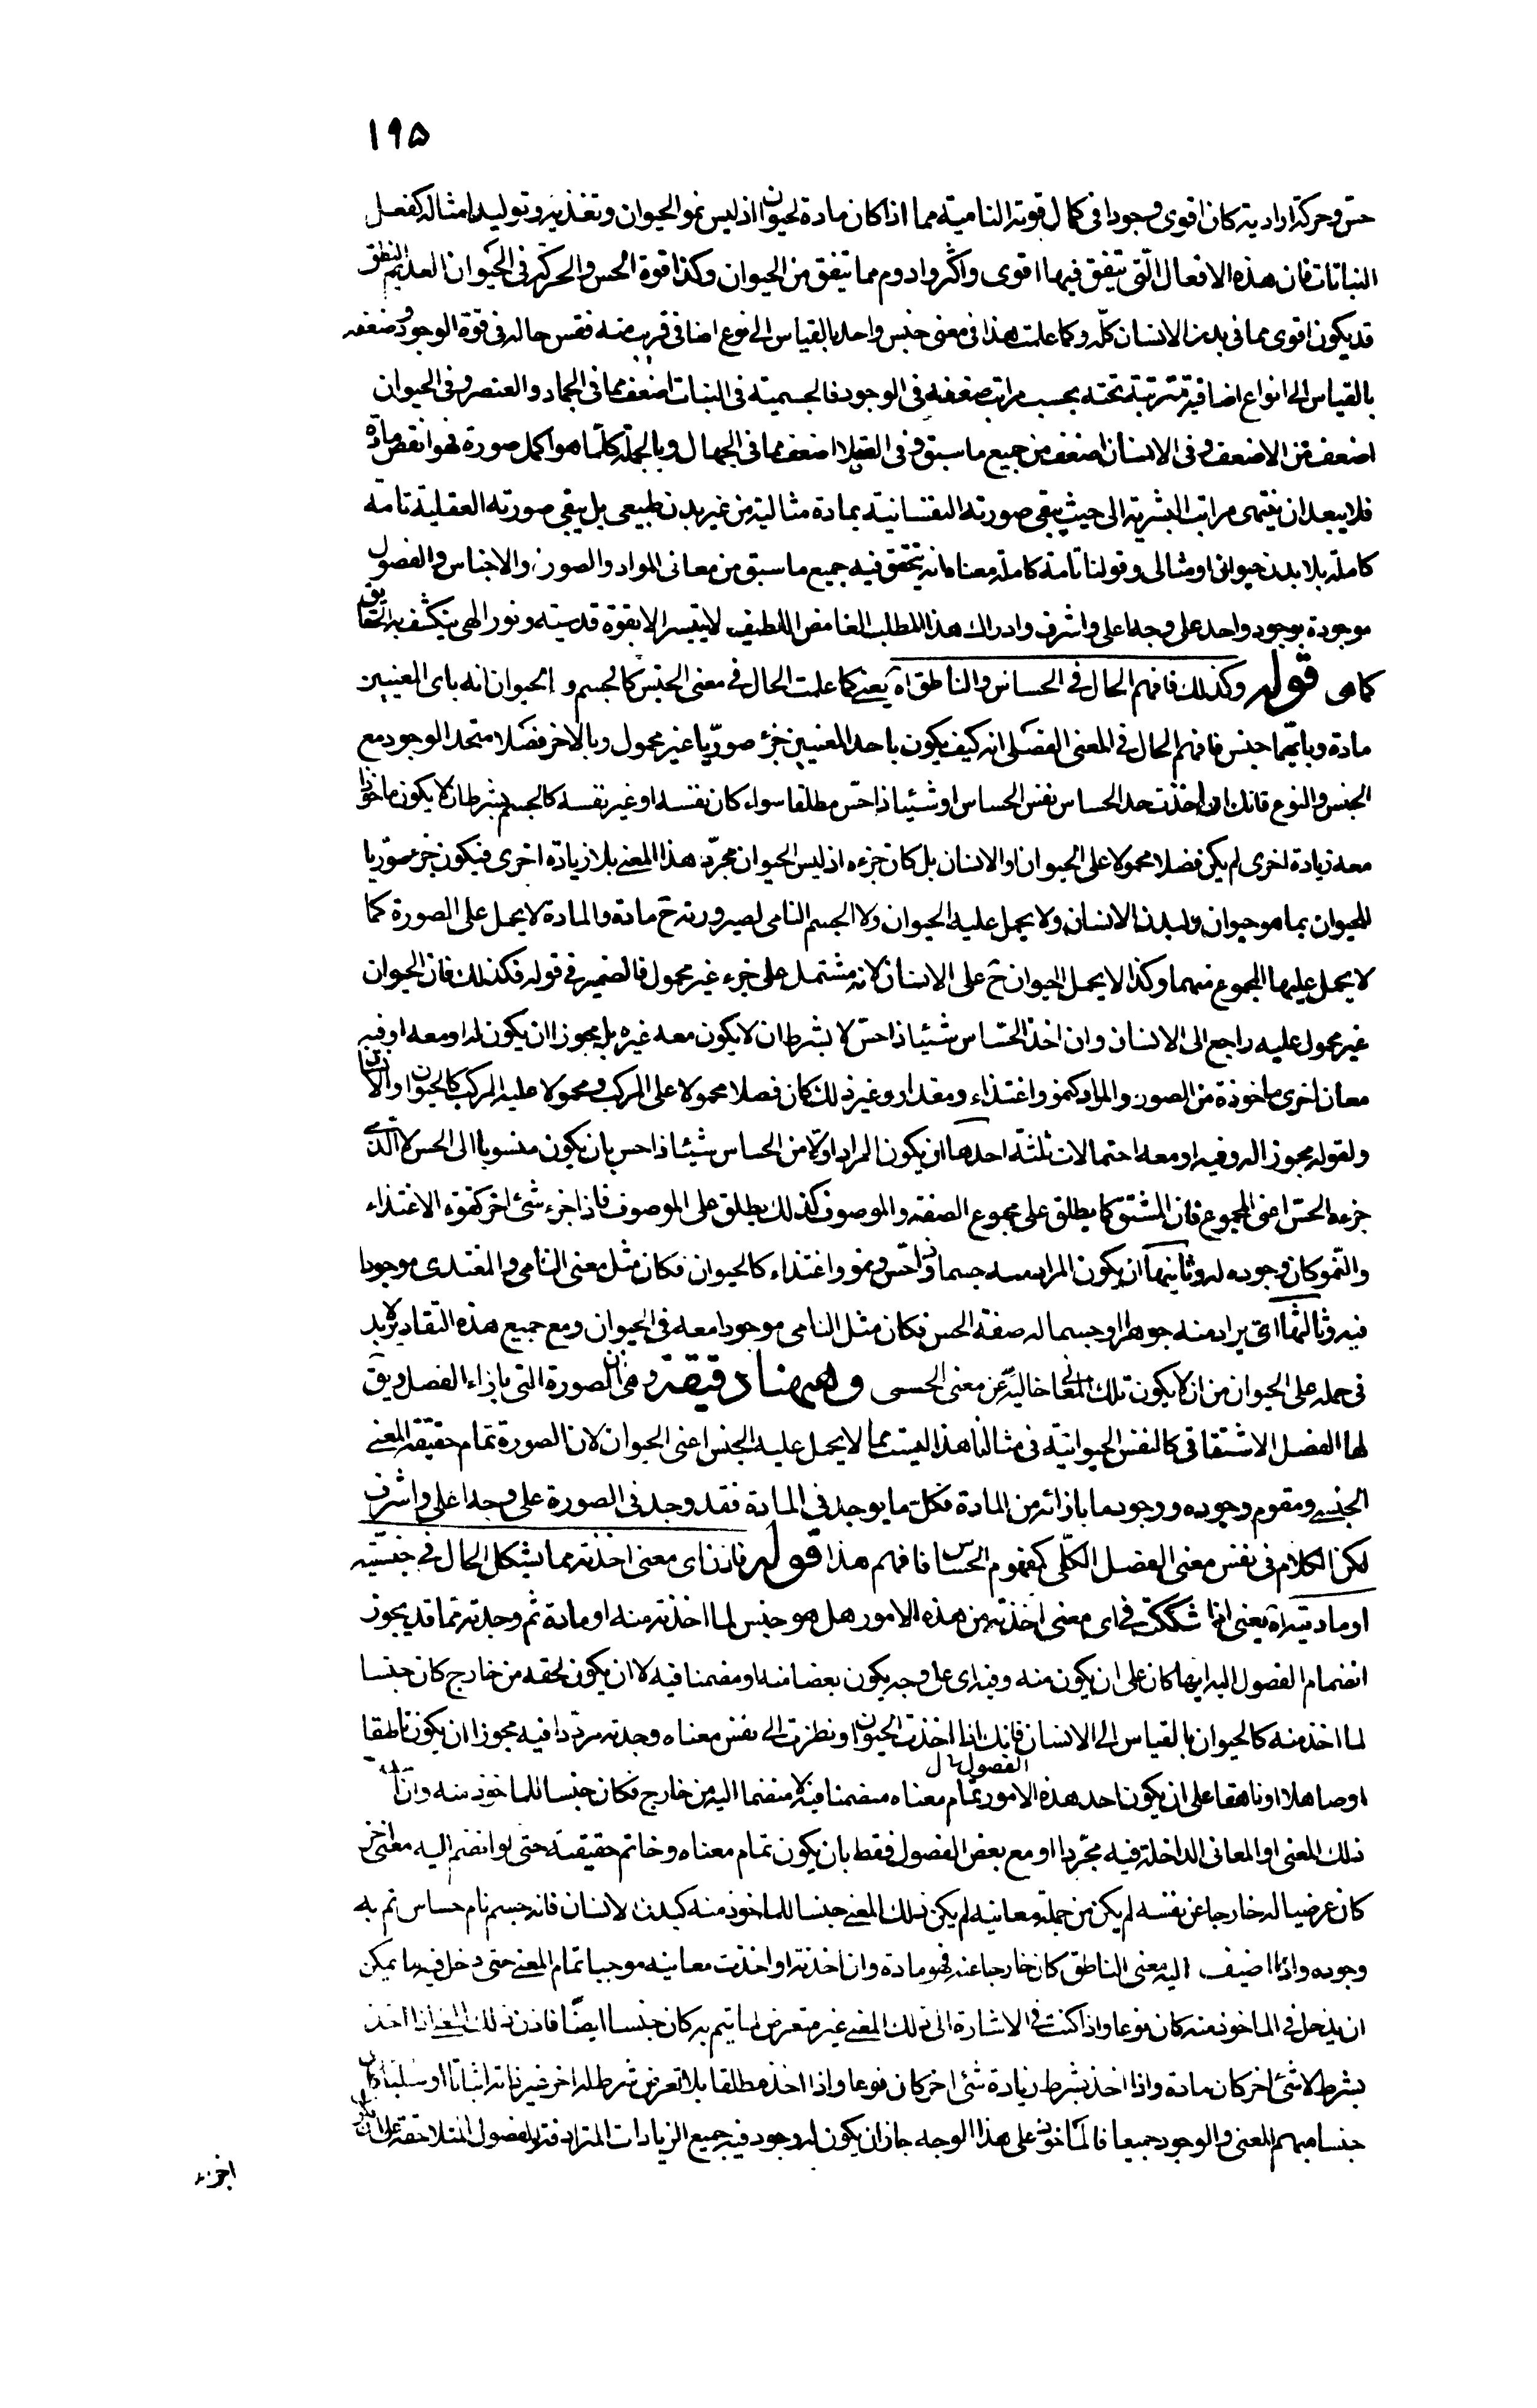 ١٩٥
حس وحركة ارادية كان اقوى وجودا فى كمال قوته النامية مما اذا كان مادة لحيوان اذ ليس نمو الحيوان وتغذيه وتوليد امثاله كفعل
النباتات فان هذه الافعال التى تتفق فيها اقوى واكثر وادوم مما تتفق من الحيوان وكذا قوة الحس والحركة فى الحيوان العديم النطق
قد يكون اقوى مما فى بدن الانسان كله وكما علمت هذا فى معنى جنس واحد بالقياس الى نوع اضافى قريب منه فقس حاله فى قوة الوجود وضعفه
بالقياس الى انواع اضافية مترتبة تحته بحسب مراتب ضعفه فى الوجود فالجسمية فى النبات اضعف مما فى الجماد والعنصر وفى الحيوان
اضعف من الاضعف وفى الانسان اضعف من جميع ما سبق وفى العقلا اضعف مما فى الجهال وبالجملة كلما هو اكمل صورة فهو انقص مادة
فلا يبعد ان ينتهى مراتب البشرية الى حيث يبقى صورته النفسانية بمادة مثالية من غير بدن طبيعى بل يبقى صورته العقلية تامة
كاملة بلا بدن حيوانى او مثالى وقولنا تامة كاملة معناه انه يتحقق فيه جميع ما سبق من معانى المواد والصور والاجناس والفصول
موجودة بوجود واحد على وجه اعلى واشرف وادراك هذا المطلب الغامض اللطيف لا يتيسر الا بقوة قدسية ونور الهى ينكشف به الحقايق
كما هى قوله وكذلك فافهم الحال فى الحساس والناطق اه يعنى كما علمت الحال فى معنى الجنس كالجسم و الحيوان انه باى المعنيين
مادة وبايهما جنس فافهم الحال فى المعنى الفصلى انه كيف يكون باحد المعنيين جزء صوريا غير محمول وبالاخر فصلا متحد الوجود مع
الجنس والنوع فانك ان اخذت حد الحساس نفس الحساس او شيئا ذا حس مطلقا سواء كان نفسه او غير نفسه كالجسم بشرط ان لا يكون ماخوذا
معه زيادة اخرى لم يكن فصلا محمولا على الحيوان او الانسان بل كان جزءه اذ ليس الحيوان مجرد هذا المعنى بلا زيادة اخرى فيكون جزء صوريا
للحيوان بما هو حيوان ولبدن الانسان ولا يحمل عليه الحيوان ولا الجسم النامى لصيرورته ح مادة والمادة لا يحمل على الصورة كما
لا يحمل عليها المجموع منهما وكذا لا يحمل الحيوان ح على الانسان لانه مشتمل على جزء غير محمول فالضمير فى قوله فكذلك فان الحيوان
غير محمول عليه راجع الى الانسان وان اخذ الحساس شيئا ذا حس لا بشرط ان لا يكون معه غيره بل مجوزا ان يكون له او معه او فيه
معان اخرى ماخوذة من الصور والمواد كنمو واغتذاء ومقدار وغير ذلك كان فصلا محمولا على المركب ومحمولا عليه المركب كالحيوان او الانسان
ولقوله مجوز اله وفيه او معه احتمالات ثلثة احدها ان يكون المراد اولا من الحساس شيئا ذا حس بان يكون منسوبا الى الحس لا الذى
جزءه الحس اعنى المجموع فان المشتق كما يطلق على مجموع الصفة والموصوف كذلك يطلق على الموصوف فاذا جزء شئ اخر كقوة الاغتذاء
والنمو كان وجوده له وثانيها ان يكون المراد منه جسما ذا حس ونمو واغتذاء كالحيوان فكان مثل معنى النامى والمغتذى موجودا
فيه وثالثها ان يراد منه جوهرا او جسما له صفة الحس فكان مثل النامى موجودا معه فى الحيوان ومع جميع هذه التقادير لا بد
فى حمله على الحيوان من ان لا يكون تلك المعانى خالية عن معنى الحسى وههنا دقيقة وهى ان الصورة التى بازاء الفصل ويق
لها الفصل الاشتقاقى كالنفس الحيوانية فى مثالنا هذا ليست مما لا يحمل عليه الجنس اعنى الحيوان لان الصورة تمام حقيقة المعنى
الجنسى ومقوم وجوده ووجود ما بازائه من المادة فكل ما يوجد فى المادة فقد وجد فى الصورة على وجه اعلى واشرف
لكن الكلام فى نفس معنى الفصل الكلى كمفهوم الحساس فافهم هذا قوله فاذن اى معنى اخذته مما يشكل الحال فى جنسيته
او ماديته اه يعنى اذا شككت فى اى معنى اخذته من هذه الامور هل هو جنس لما اخذته منه او مادة ثم وجدته مما قد يجوز
انضمام الفصول اليه ايها كان على ان يكون منه وفيه اى على وجه يكون بعضا منه او مضمنا فيه لا ان يكون لحقه من خارج كان جنسا
لما اخذ منه كالحيوان بالقياس الى الانسان فانك اذا اخذت الحيوان ونظرت الى نفس معناه وجدته مرددا فيه مجوزا ان يكون ناطقا
الفصول
او صاهلا او ناهقا على ان يكون احد هذه الامور تمام معناه متضمنا فيه لا منضما اليه من خارج فكان جنسا للماخوذ منه وان
ذلك المعنى او المعانى الداخلة فيه مجردا او مع بعض الفصول فقط بان يكون تمام معناه وخاتم حقيقته حتى لو انضم اليه معنى اخر
كان عرضيا له خارجا عن نفسه لم يكن من جملة معانيه لم يكن ذلك المعنى جنسا للماخوذ منه كبدن لانسان فانه جسم نام حساس تم به
وجوده واذا اضيف اليه معنى الناطق كان خارجا عنه فهو مادة وان اخذته او اخذت معانيه موجبا تمام المعنى حتى دخل فيه ما يمكن
ان يدخل فى الماخوذ منه كان نوعا واذا كنت فى الاشارة الى ذلك المعنى غير متعرض لما يتم به كان جنسا ايضا فاذن ذلك المعنى اذا اخذ
بشرط لا شئ اخر كان مادة واذا اخذ بشرط زيادة شئ اخر كان نوعا واذا اخذ مطلقا بلا تعرض شرط له اخر غير ذاته اثباتا او سلبا كان
جنسا مبهم المعنى والوجود جميعا فالماخوذ على هذا الوجه جاز ان يكون له وجود فيه جميع الزيادات المترادفة والفصول المتلاحقة على ان يكون